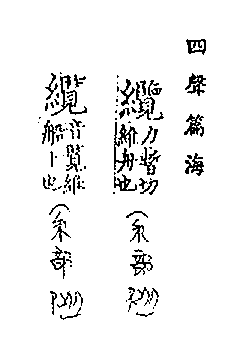 四聲篇海
纜力暫切維舟也(糸部
纜音覽維船上也(糸部